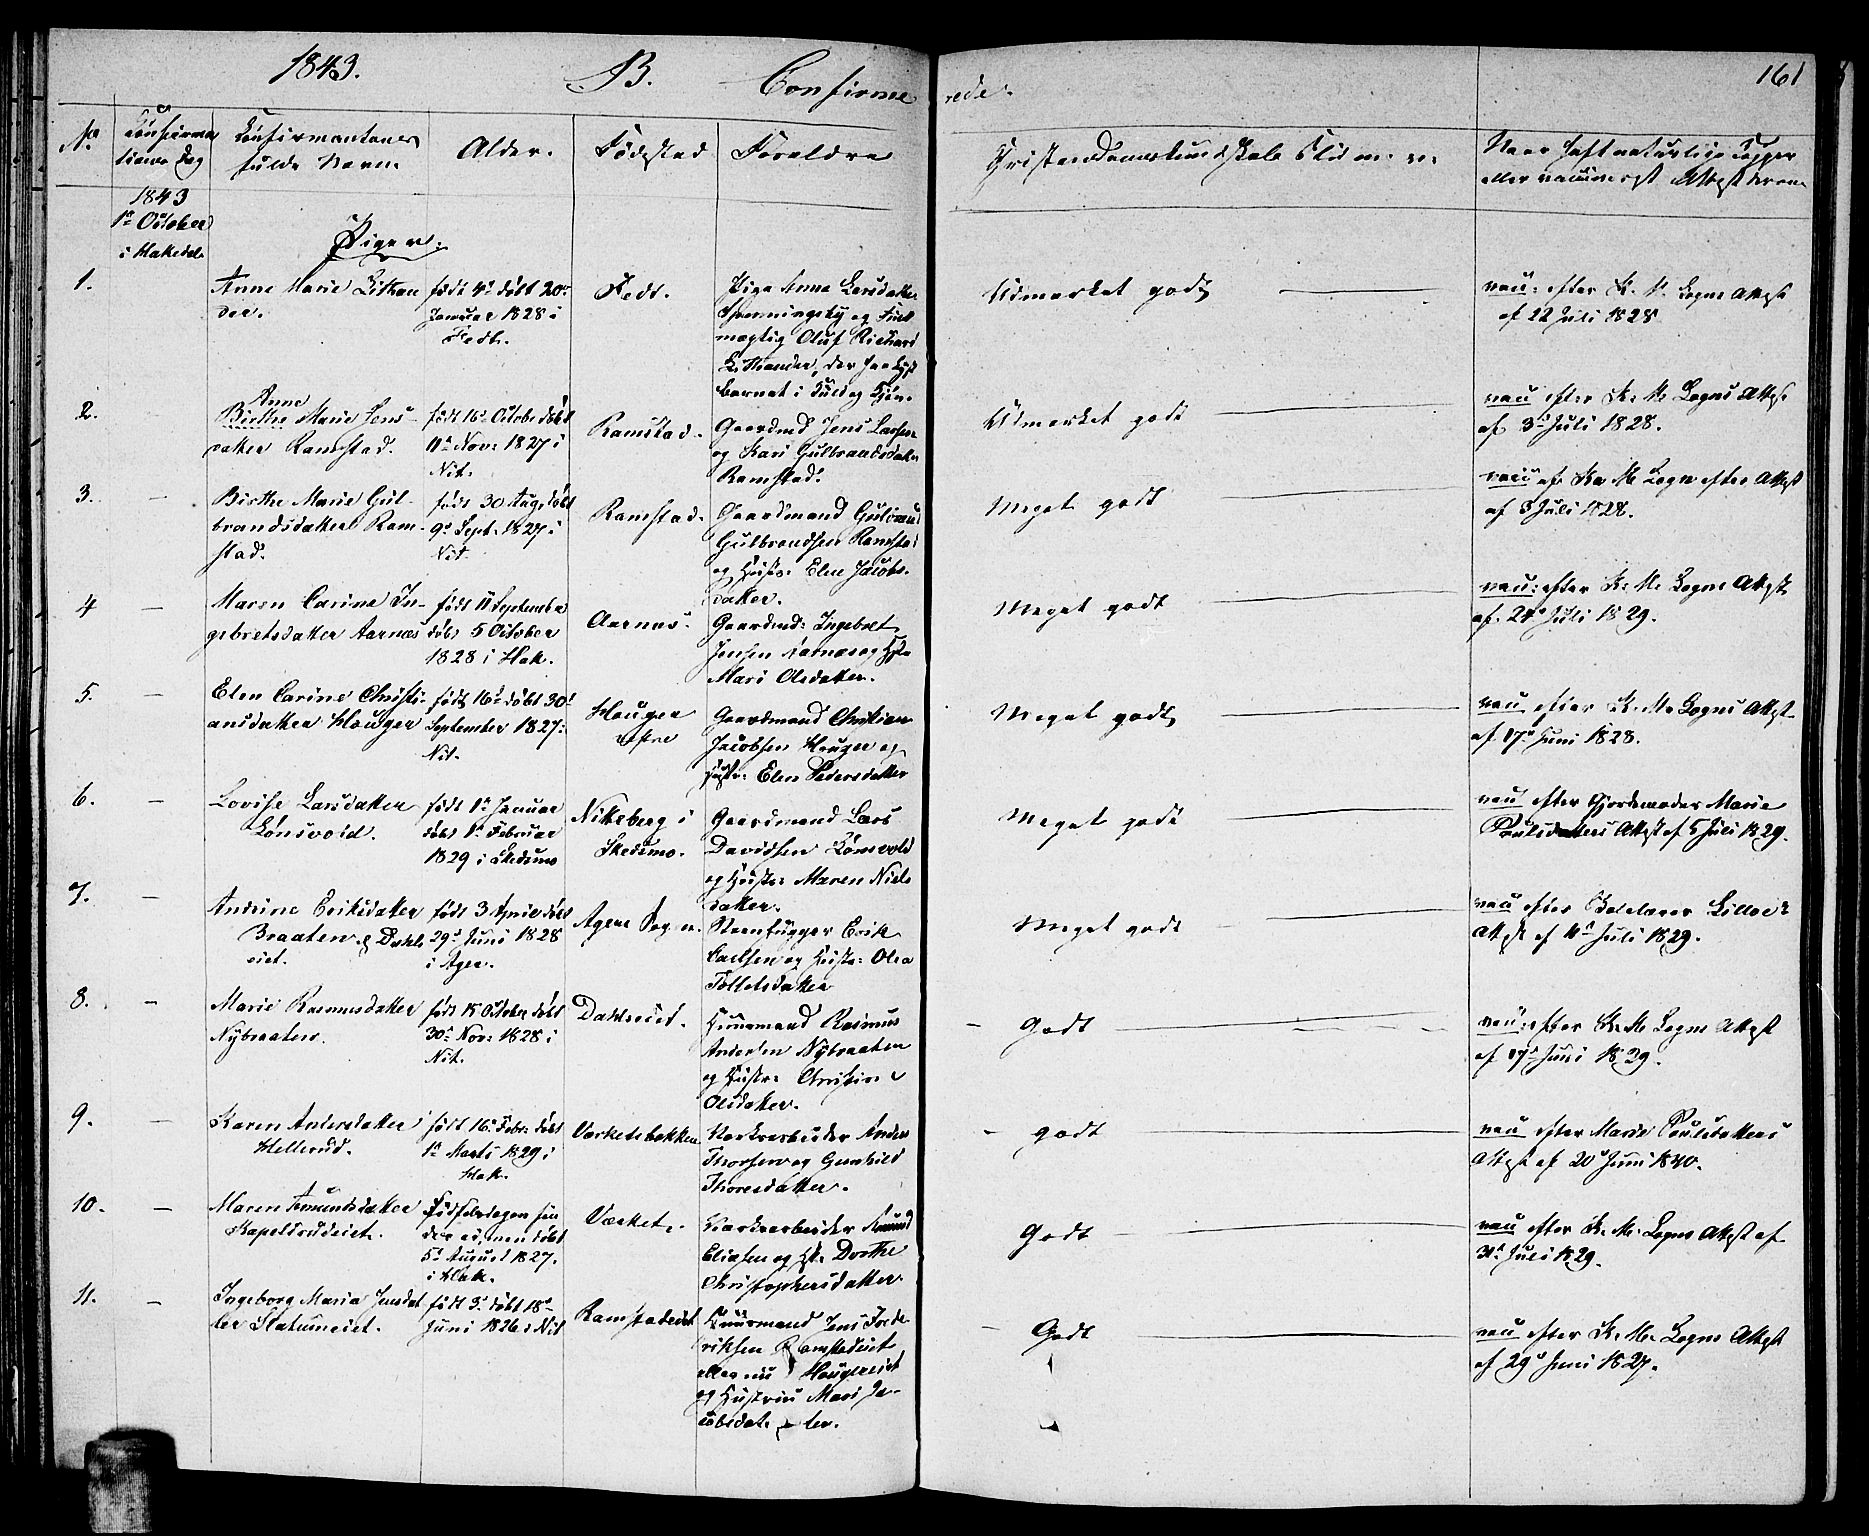 1843. B. Confirmerede. 161
No Confirmationens Dag Confirmantens fulde Navn Alder. Fødested Forældre Christendomskundskab Naar haft naturlige Kopper eller vaccineret, Attest derom
1843
1ste October
i Hakedal
Piger.
1.
Anne Marie Lithander.
født 4de døbt 20de
Januar 1828 i
Fedt.
Pige Anna Larsdatter
og Fuldmægtig Oluf Richard
Lithander, der har
barnet i
Udmærket godt
vac: efter K. M. Logns Attest
af 22 Juli 1828
2.
Anne
Birthe Marie Jensdatter Ramstad.
født 16de October døbt
11te Nov: 1827 i
Nit.
Ramstad.
Gaardmd Jens Larsen
og Kari Gulbrandsdatter
Ramstad.
Udmærket godt
vac efter K. M. Logns Attest
af 3de Juli 1828.
3. —
Birthe Marie Gulbrandsdatter Ramstad.
født 30 Aug, døbt
9de Sept. 1827 i
Nit.
Ramstad.
Gaardmand Gulbrand
Gulbrandsen Ramstad
og Hustr: Elen Jacobsdatter.
Meget godt
vac af K. M. Logn efter Attest
af 3 Juli 1828.
4 —
Maren Carine Ingebretsdatter Aarnæs
født 11 September
døbt 5 October
1828 i Hak.
Aarnæs.
Gaardmd: Ingebret
Jensen Aarnæs og Hstr
Mari Olsdatter.
Meget godt
vac: efter K: M: Logns Attest
af Juli 1829.
5. —
Elen Carine Christiansdatter Hauger
født 16de døbt 30te
September 1827 i
Nit.
Hauger
østre
Gaardmand Christian
Jacobsen Hauger og
Hustr: Elen Pedersdatter
Meget godt
vac efter K. M. Logns Attest
af 17de Juni 1828.
6. —
Lovise Larsdatter
Lønsvold.
født 1ste Januar
døbt 1ste Februar
1829 i Skedsmo
Nitteberg i
Skedsmo.
Gaardmand Lars
Davidsen Lønsvold
og Hustr: Maren Nielsdatter.
Meget godt
vac efter Gjordemoder Marie
Poulsdatters Attest af 5 Juli 1829.
7. —
Andrine Eriksdatter
Braaten, Dahlseiet.
født 3 April døbt
29de Juni 1828
i Ager.
Agers Sogn.
Steenhugger Erik
Carlsen og Hustr: Olea
Tolletsdatter
Meget godt
vac efter
Attest af 4de Juli 1829.
8. —
Marie Rasmusdatter
Nybraaten.
født 15 October døbt
30te Nov: 1828 i
Nit.
Dahlseiet.
Huusmand Rasmus
Andersen Nybraaten
og Hustr: Christine
Olsdatter.
— Godt
vac: efter K. M. Logns Attest
af 17de Juni 1829.
9. —
Karen Andersdatter
Hellerud.
født 16de Febr: døbt
1ste Marts 1829 i
Hak.
Værketsbakken
Værksarbeider Anders
Thorsen og Gunhild
Thoresdatter.
— godt
vac efter Marie Poulsdatters
Attest af 20de Juni 1840.
10. —
Maren Amundsdatter
Kapeldrudeiet.
døbt
5te August 1827.
i Hak.
Værket.
Værksarbeider Amund
Eliasen og H: Dorthe
Christophersdatter.
Godt
vac efter K. M. Logns Attest af
31te Juli 1829.
11. —
Ingeborg Maria Jensdatter Slatumeiet.
født 3de døbt 18de
Juni 1826 i Nit
Ramstadeiet
Huusmand Jens Frederiksen Ramstadeiet
eller nu Haugereiet
og Hustrue Mari Jacobsdatter.
— Godt
vac efter K. M. Logns Attest
af 29de Juni 1827.